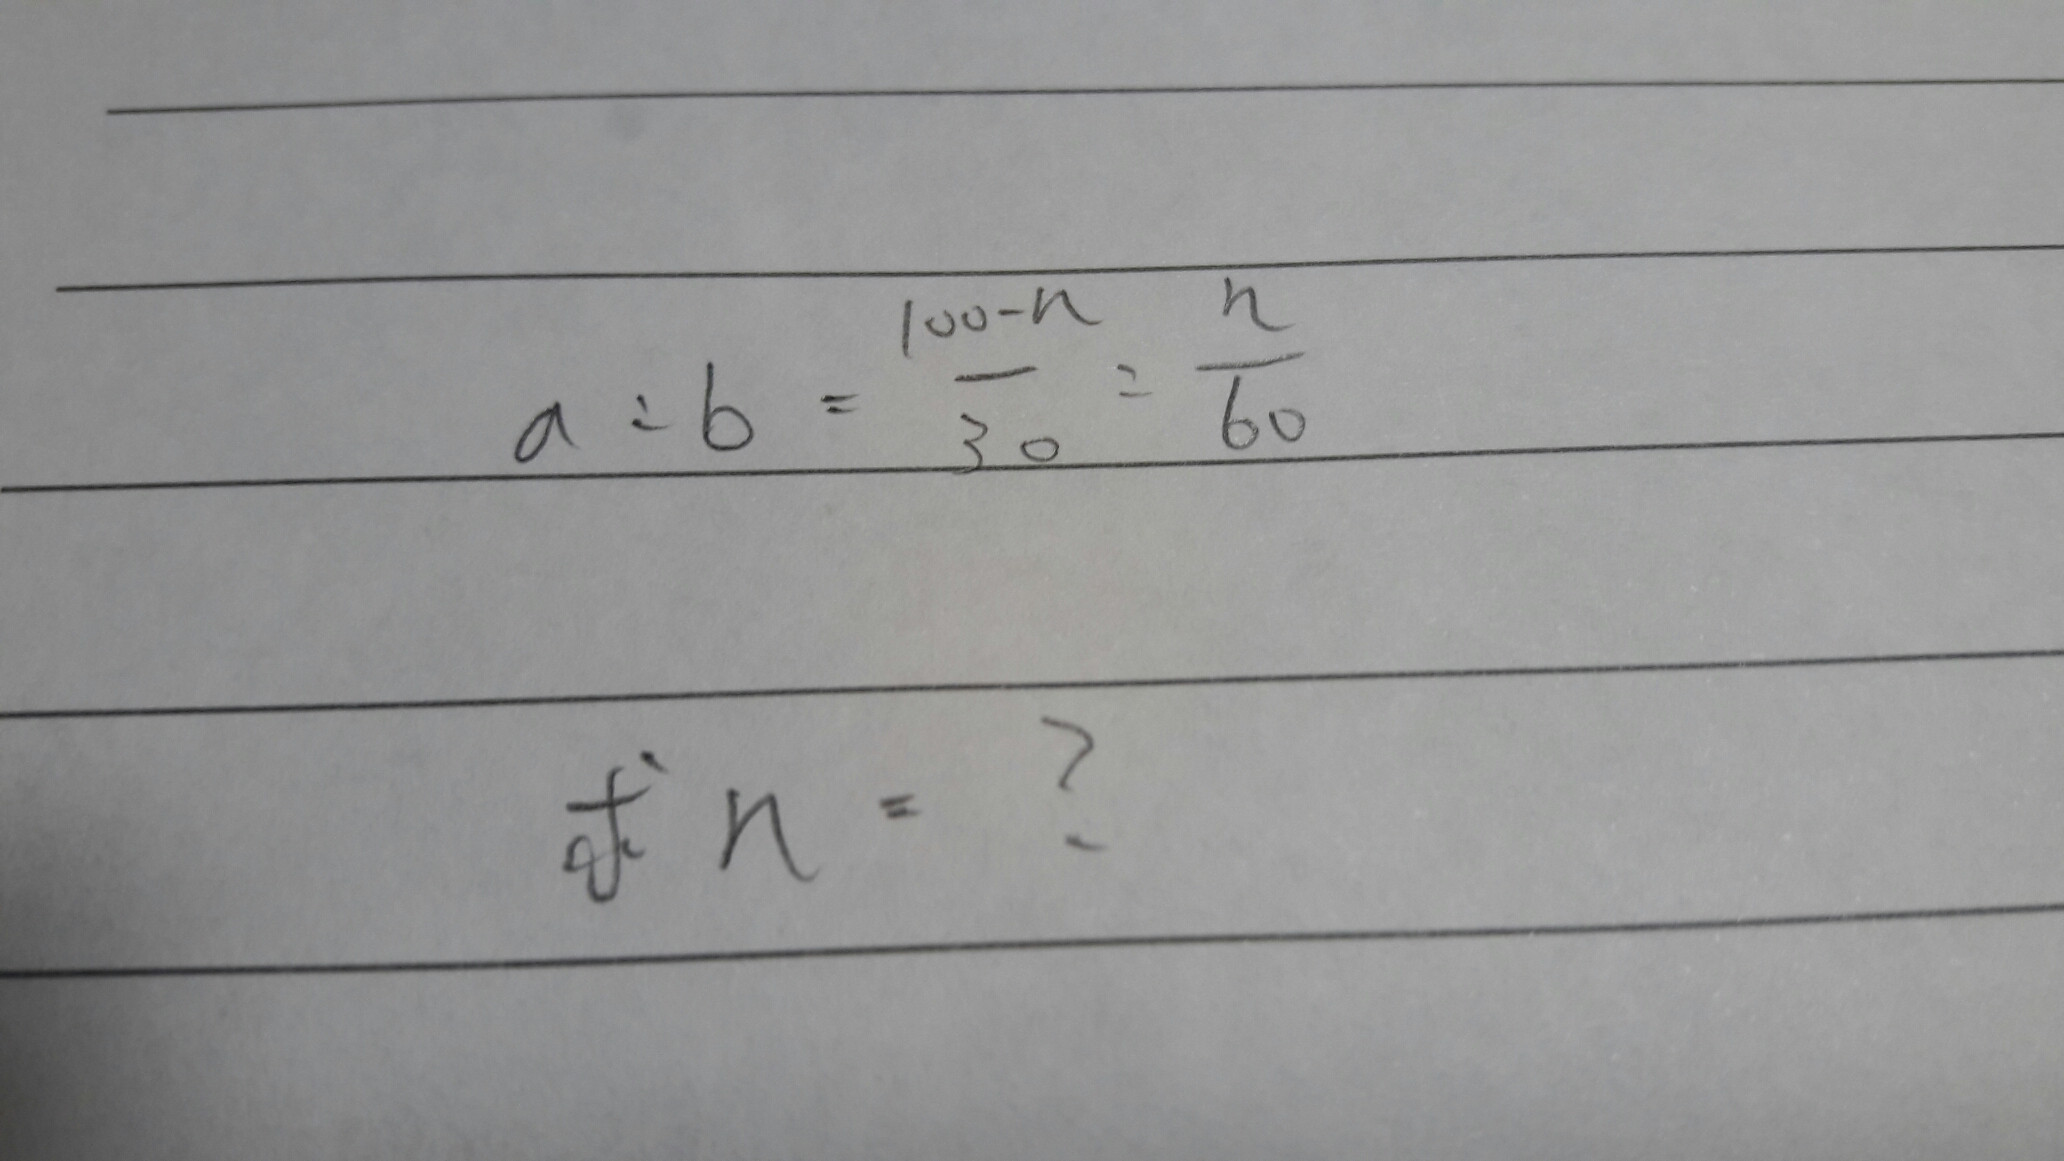 a : b = \frac{100-n}{30} : \frac{n}{60}
求 n = ?